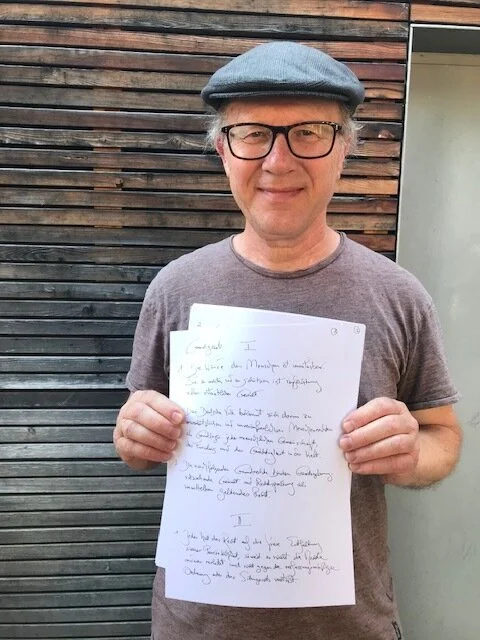 2
① ②
Grundgesetz I
1. Die Würde des Menschen ist unantastbar.
Sie zu achten und zu schützen ist Verpflichtung
aller staatlichen Gewalt
Das Deutsche Volk bekennt sich darum zu
unverletzlichen und unveräußerlichen Menschenrechten
als Grundlage jeder menschlichen Gemeinschaft,
des Friedens und der Gerechtigkeit in der Welt
Die nachfolgenden Grundrechte binden Gesetzgebung
vollziehende Gewalt und Rechtsprechung als
unmittelbar geltendes Recht.
II
1 Jeder hat das Recht auf die freie Entfaltung
seiner Persönlichkeit, soweit er nicht die Rechte
anderer verletzt und nicht gegen die verfassungsmäßige
Ordnung oder das Sittengesetz verstößt.